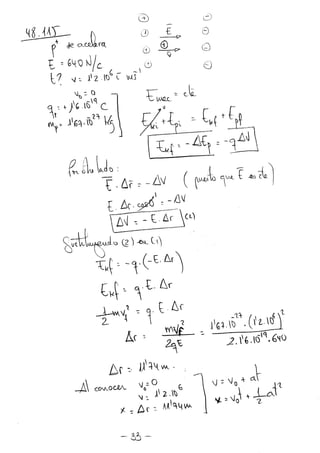 48.115
p⁺ se acelera
E = 640 N/C
t? v = 1'2.10⁶ i ms⁻¹
v₀ = 0
q = +1'6.10⁻¹⁹ C
mp = 1'67.10⁻²⁷ kg
E
v
Emec = cte
Eki + Epi = Ekf + Epf
Ekf = -ΔEp = -qΔV
Por otro lado:
E . Δr = -ΔV (puesto que E es cte)
E . Δr . cos0° = -ΔV
ΔV = -E . Δr (2)
Sustituyendo (2) en (1)
Ekf = -q.(-E.Δr)
Ekf = q.E.Δr
1/2 mvf² = q.E.Δr
Δr = mvf²/2qE = 1'67.10⁻²⁷.(1'2.10⁶)²/2.1'6.10⁻¹⁹.640
Δr = 11'74 m.
Al conocer v₀ = 0
v = 1'2.10⁶
x = Δr = 11'74m
v = v₀ + at
x = v₀t + 1/2 at²
- 33 -